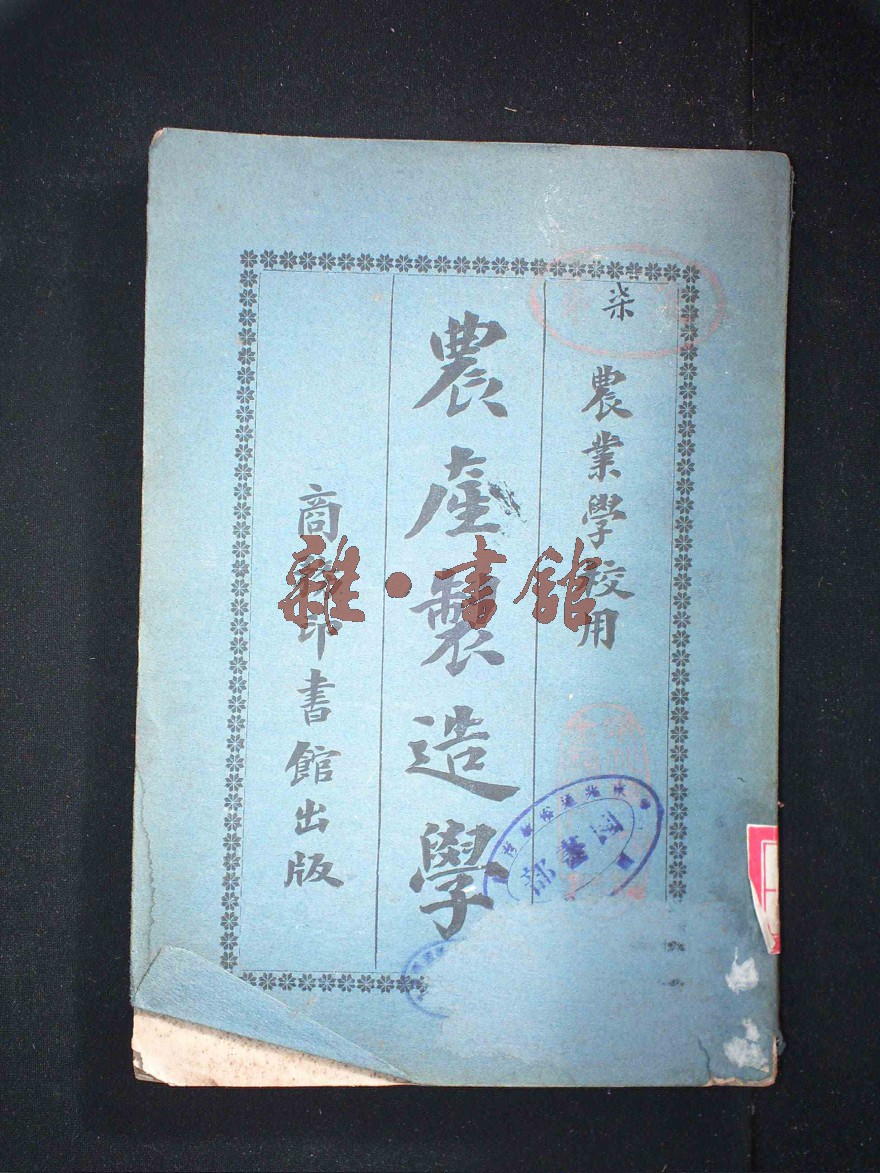 柒
農業學校用
農產製造學
商務印書館出版
雜·書館
圖書部